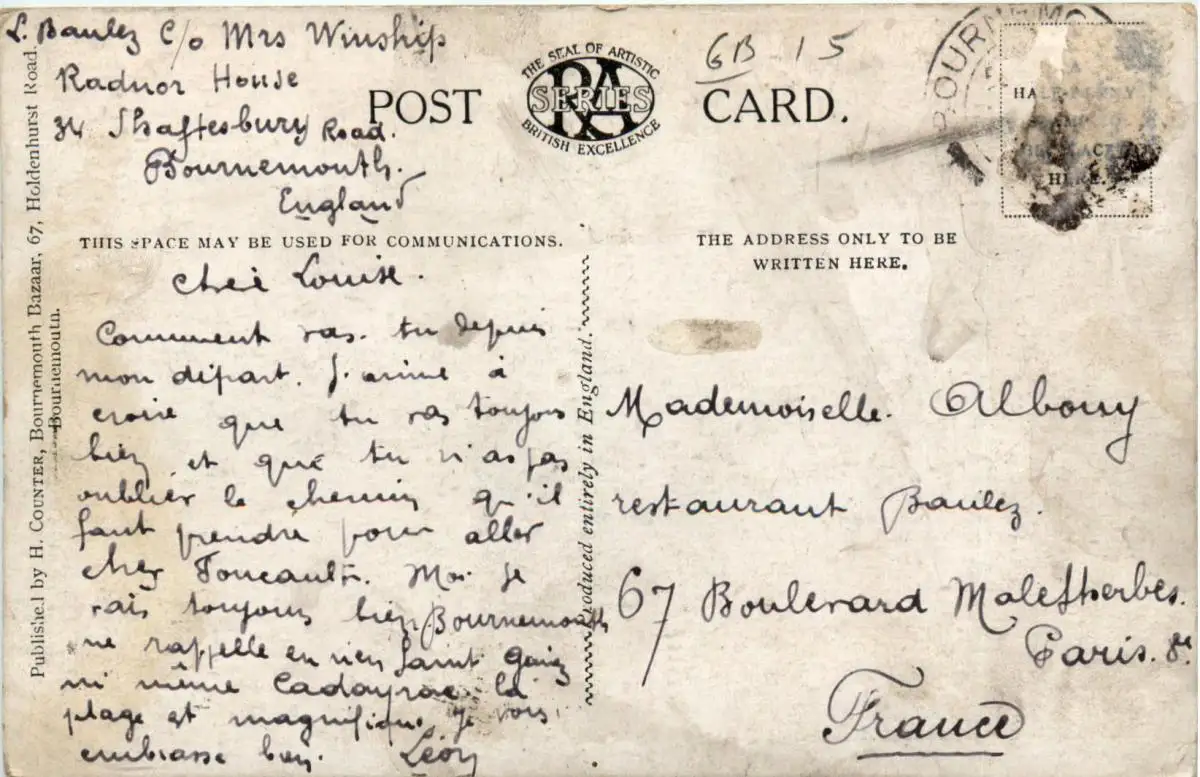 L. Baulez c/o Mrs Winship
Radnor House
34 Shaftesbury Road.
Bournemouth.
England
POST CARD.
THE SEAL OF ARTISTIC
RA
SERIES
BRITISH EXCELLENCE
GB 15
BOURN
HALFPENNY
HERE.
THIS SPACE MAY BE USED FOR COMMUNICATIONS.
THE ADDRESS ONLY TO BE
WRITTEN HERE.
Published by H. COUNTER, Bournemouth Bazaar, 67, Holdenhurst Road,
Bournemouth.
Produced entirely in England.
Cher Louise.
Comment vas-tu depuis
mon départ. J'aime à
croire que tu vas toujours
bien et que tu n'as pas
oublier le chemin qu'il
faut prendre pour aller
chez Foucault. Moi je
vais toujours bien Bournemouth
ne rappelle en rien Saint
ni même Cadayrac la
plage et magnifique je vous
embrasse bien. Léon
Mademoiselle. Albouy
restaurant Baulez.
67 Boulevard Malesherbes.
Paris. 8e
France